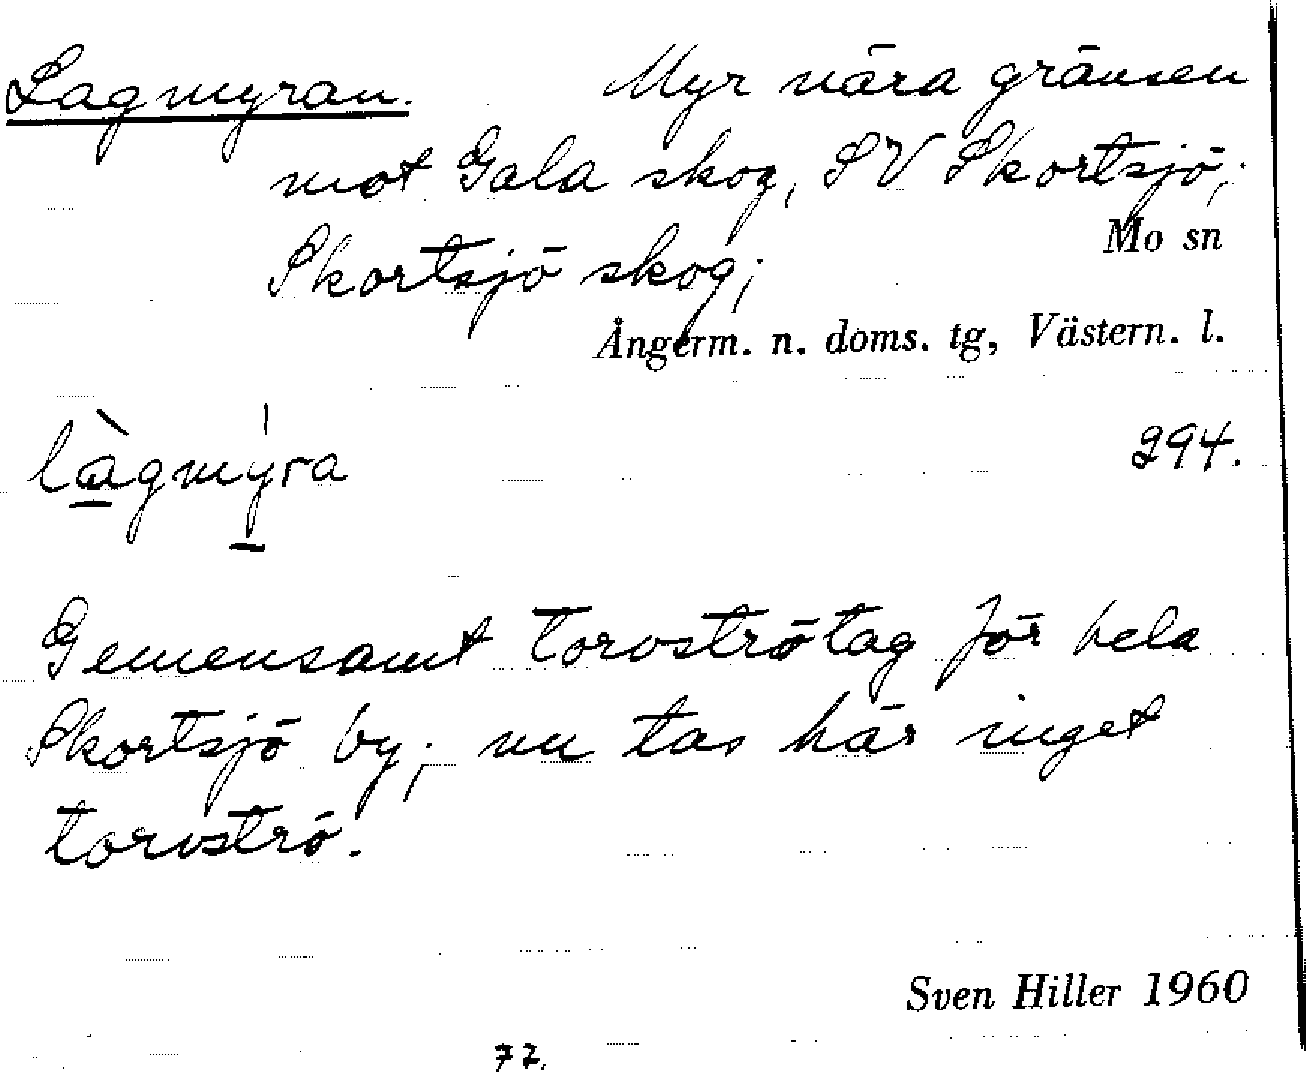 Lagmyran. Myr nära gränsen
mot Gala skog, SV Skortsjö,
Mo sn
Skortsjö skog;
Ångerm. n. doms. tg, Västern. l.
làgmýra 294.
Gemensamt torvströtag för hela
Skortsjö by; nu tas här inget
torvströ.
Sven Hiller 1960
77.